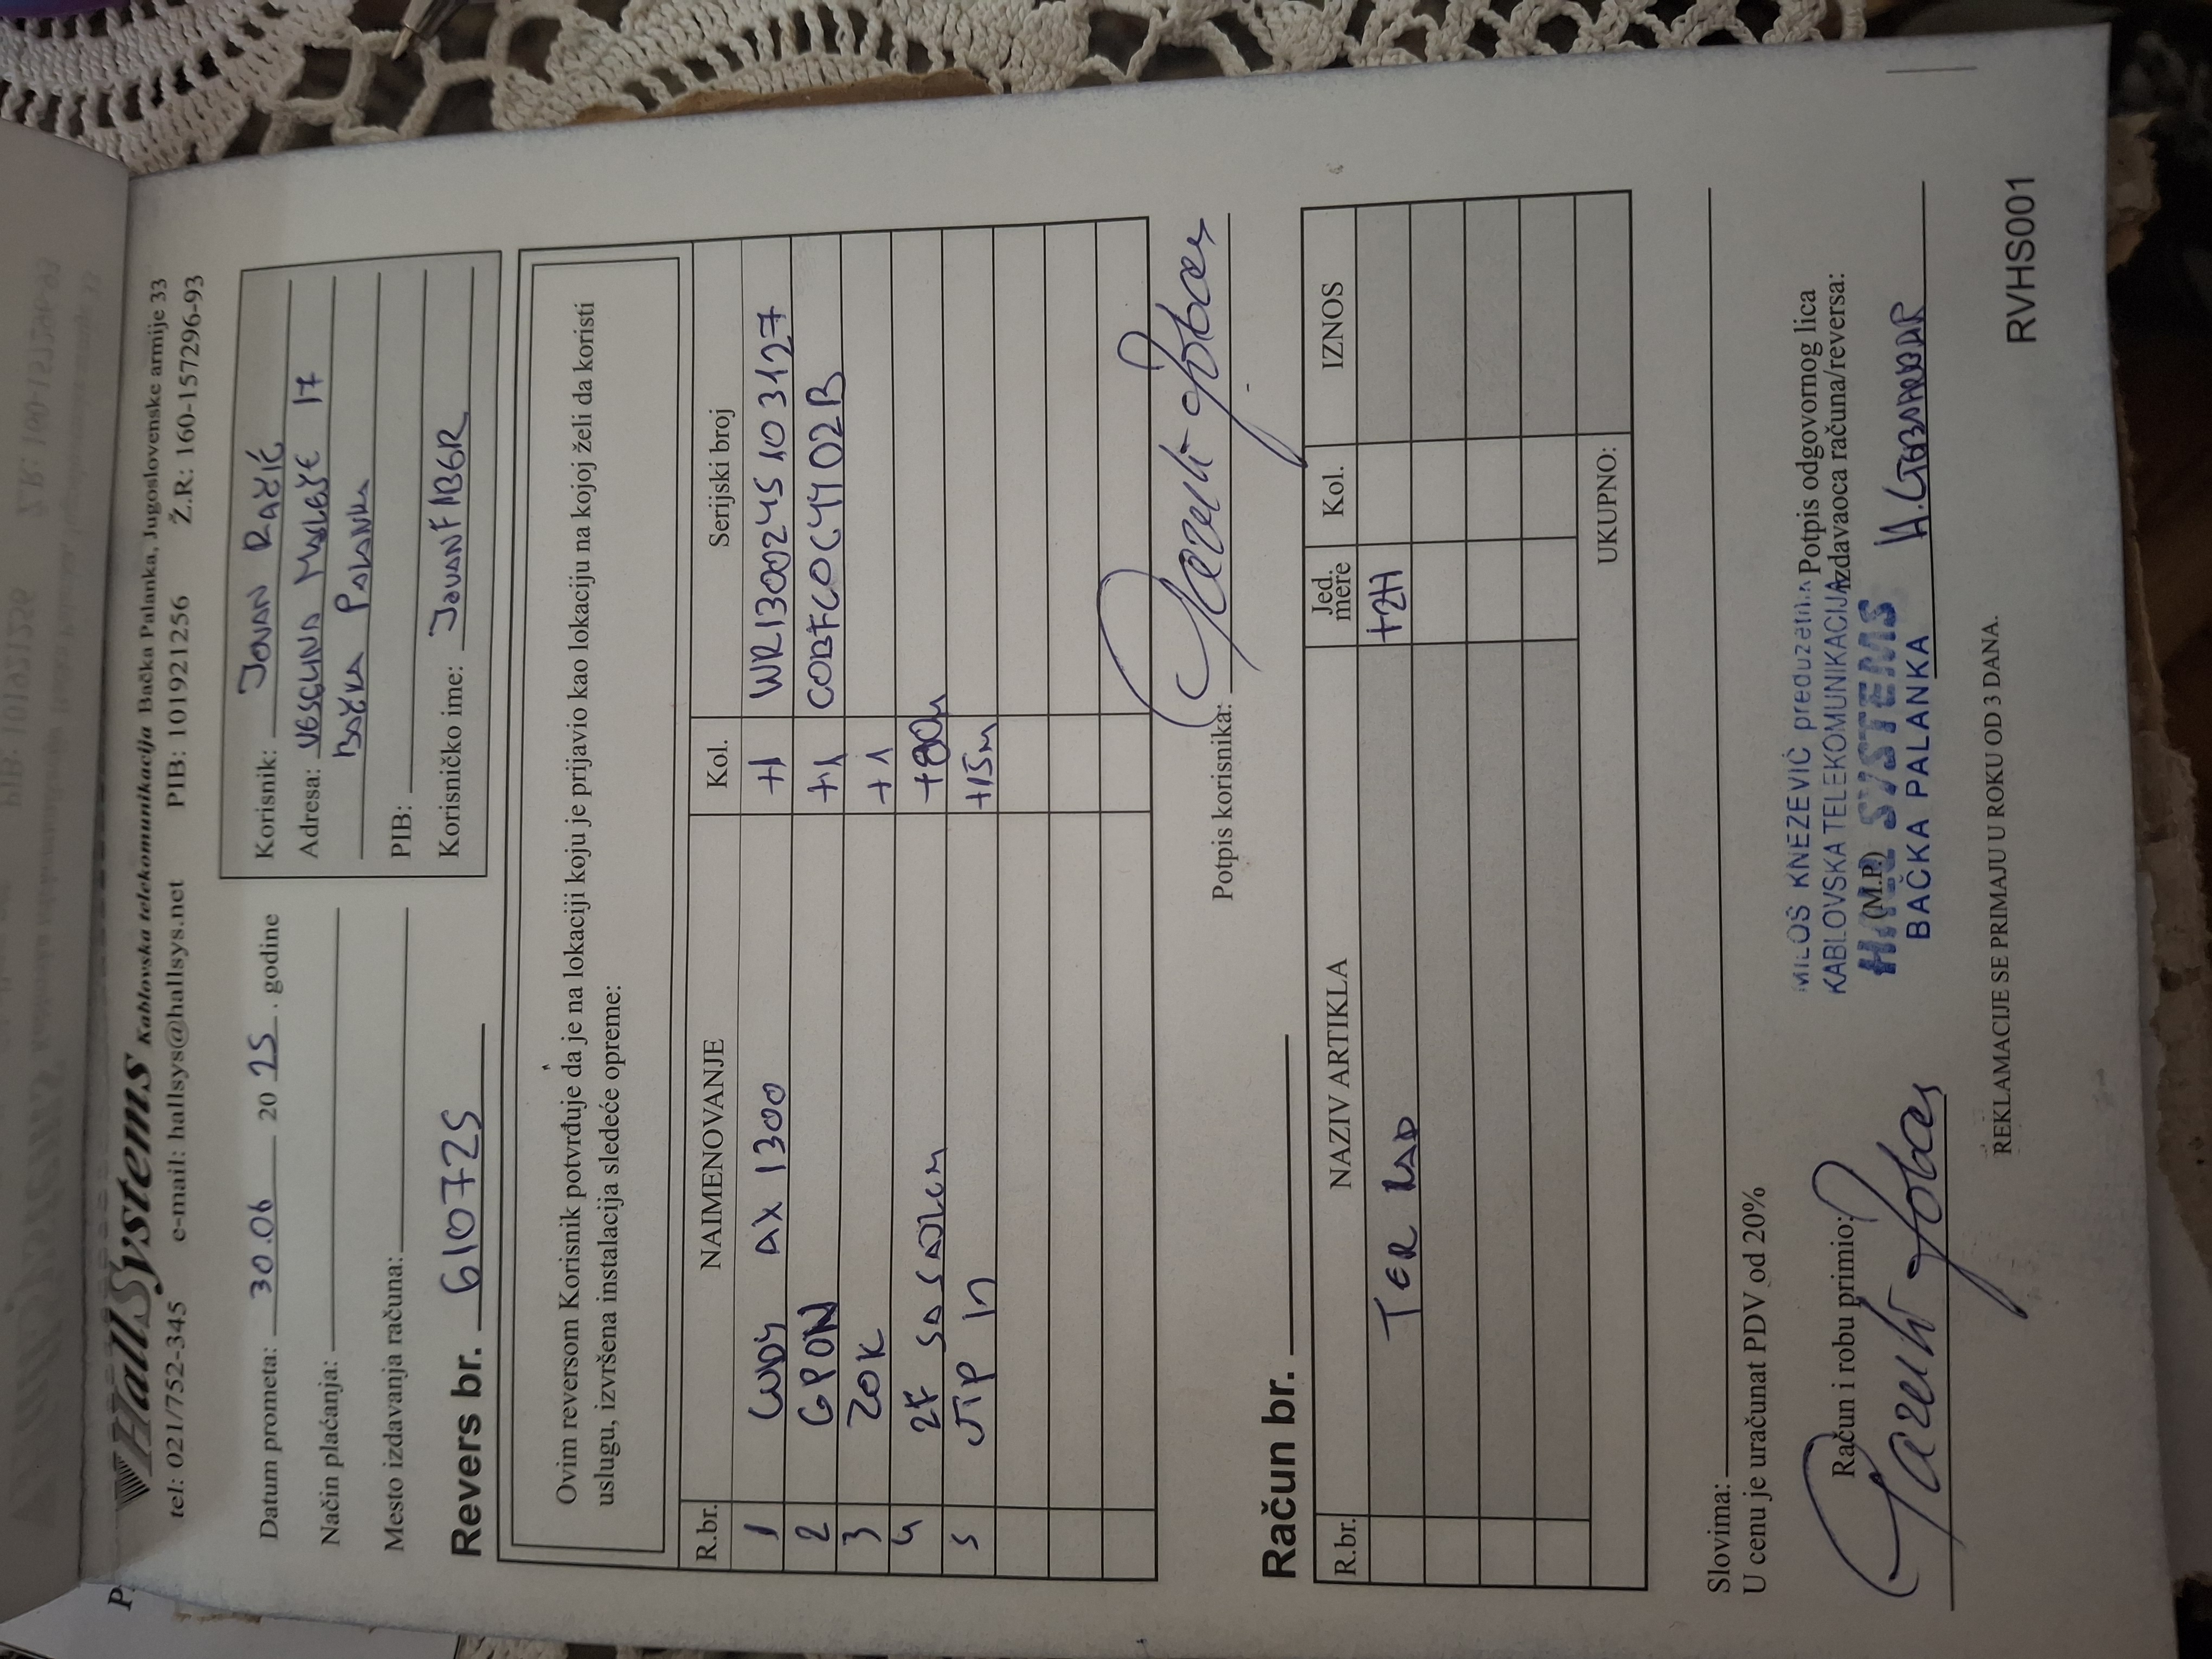 HallSystems Kablovska telekomunikacija Bačka Palanka, Jugoslovenske armije 33
tel: 021/752-345 e-mail: hallsys@hallsys.net PIB: 101921256 Ž.R.: 160-157296-93
Datum prometa: 30.06 20 25. godine
Način plaćanja:
Mesto izdavanja računa:
Korisnik: JOVAN RAČIĆ
Adresa: 17
BAČKA PALANKA
PIB:
Korisničko ime: JOVANFIBGR
Revers br. 610725
Ovim reversom Korisnik potvrđuje da je na lokaciji koju je prijavio kao lokaciju na kojoj želi da koristi
uslugu, izvršena instalacija sledeće opreme:
R.br. NAIMENOVANJE Kol. Serijski broj
1 CUDY AX 1300 +1 WR1300245103127
2 GPON +1
3 ZOK +1
4 2F SA SAJLOM +80m
5 UTP IN +15m
Potpis korisnika:
Račun br.
R.br. NAZIV ARTIKLA Jed. mere Kol. IZNOS
TER RAD +2H
UKUPNO:
Slovima:
U cenu je uračunat PDV od 20%
Račun i robu primio:
MILOŠ KNEZEVIĆ preduzetnik
KABLOVSKA TELEKOMUNIKACIJA
(M.P.)
HALL SYSTEMS
BAČKA PALANKA
Potpis odgovornog lica
izdavaoca računa/reversa:
REKLAMACIJE SE PRIMAJU U ROKU OD 3 DANA.
RVHS001